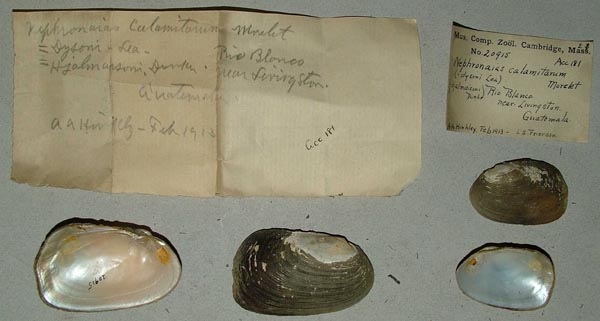 Nephronaias calamitarum Morelet
= Dysoni - Lea. Rio Blanco
= Hjalmarsoni, Dunker. near Livingston.
Guatemala
A A Hinkley - Feb 1913
Acc 181
Mus. Comp. Zoöl. Cambridge, Mass.
No 20915 Acc 181
Nephronaias calamitarum
(dysoni Lea) Morelet
hjalmarsoni Dunker Rio Blanco
near Livingston.
Guatemala.
AA Hinkley, Feb 1913 - L S Frierson